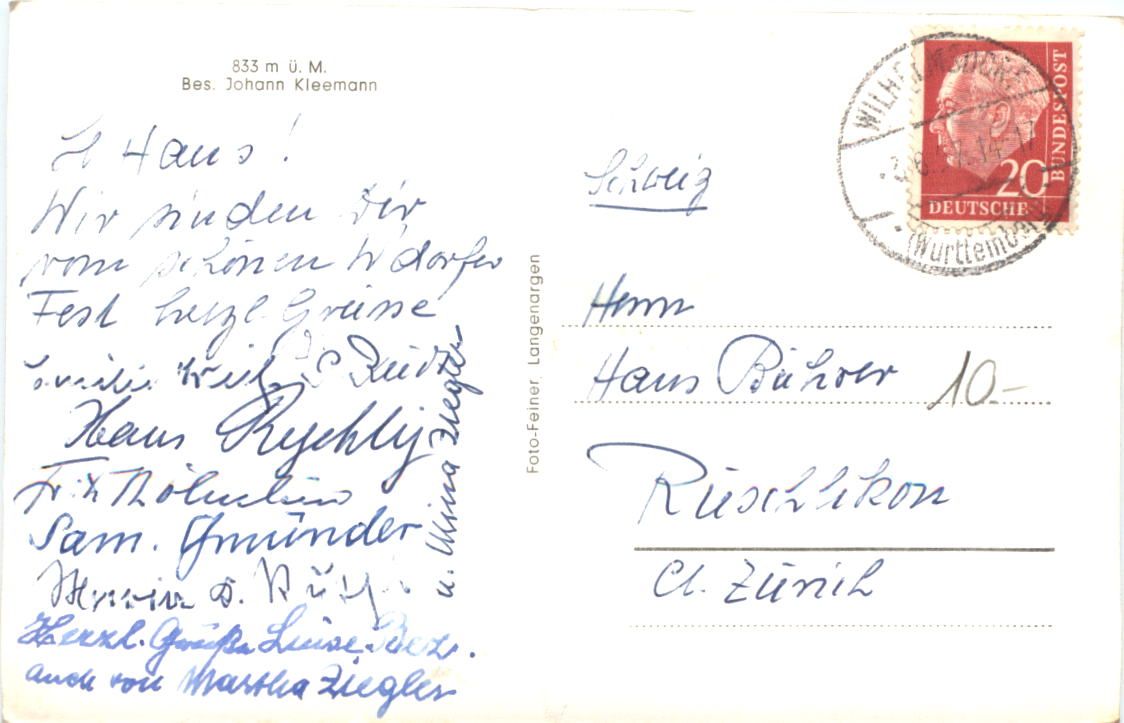 833 m ü. M.
Bes. Johann Kleemann
Hans!
Wir sinden Dir
vom schönen Wdorfer
Fest herzl. Grüsse
Hans Rychly
Fritz
Sam. Gmünder
Herzl. Grüße Luise
auch von Martha Ziegler
u. Mina Ziegler
Foto-Feiner, Langenargen
WILHELMSDORF
14-17
(Württemberg)
20
DEUTSCHE
BUNDESPOST
Schweiz
Herrn
Hans Bührer
10.-
Rüschlikon
Ct. Zürich